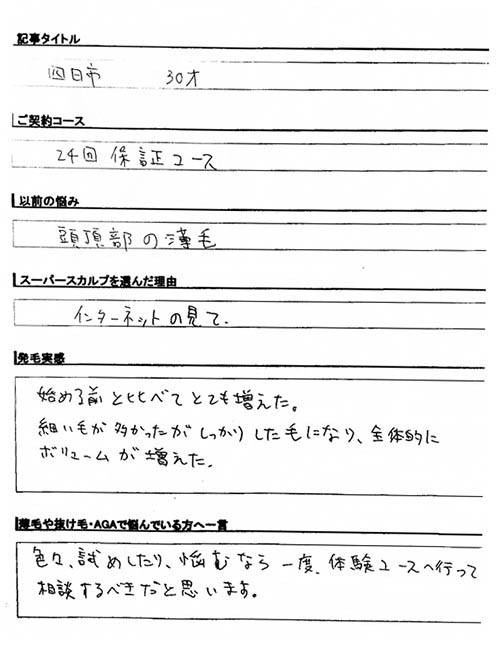 記事タイトル
四日市 30才
ご契約コース
24回 保証コース
以前の悩み
頭頂部の薄毛
スーパースカルプを選んだ理由
インターネットの見て.
発毛実感
始める前と比べてとても増えた。
細い毛が多かったがしっかりした毛になり、全体的に
ボリュームが増えた.
薄毛や抜け毛・AGAで悩んでいる方へ一言
色々、試めしたり、悩むなら一度、体験コースへ行って
相談するべきだと思います。